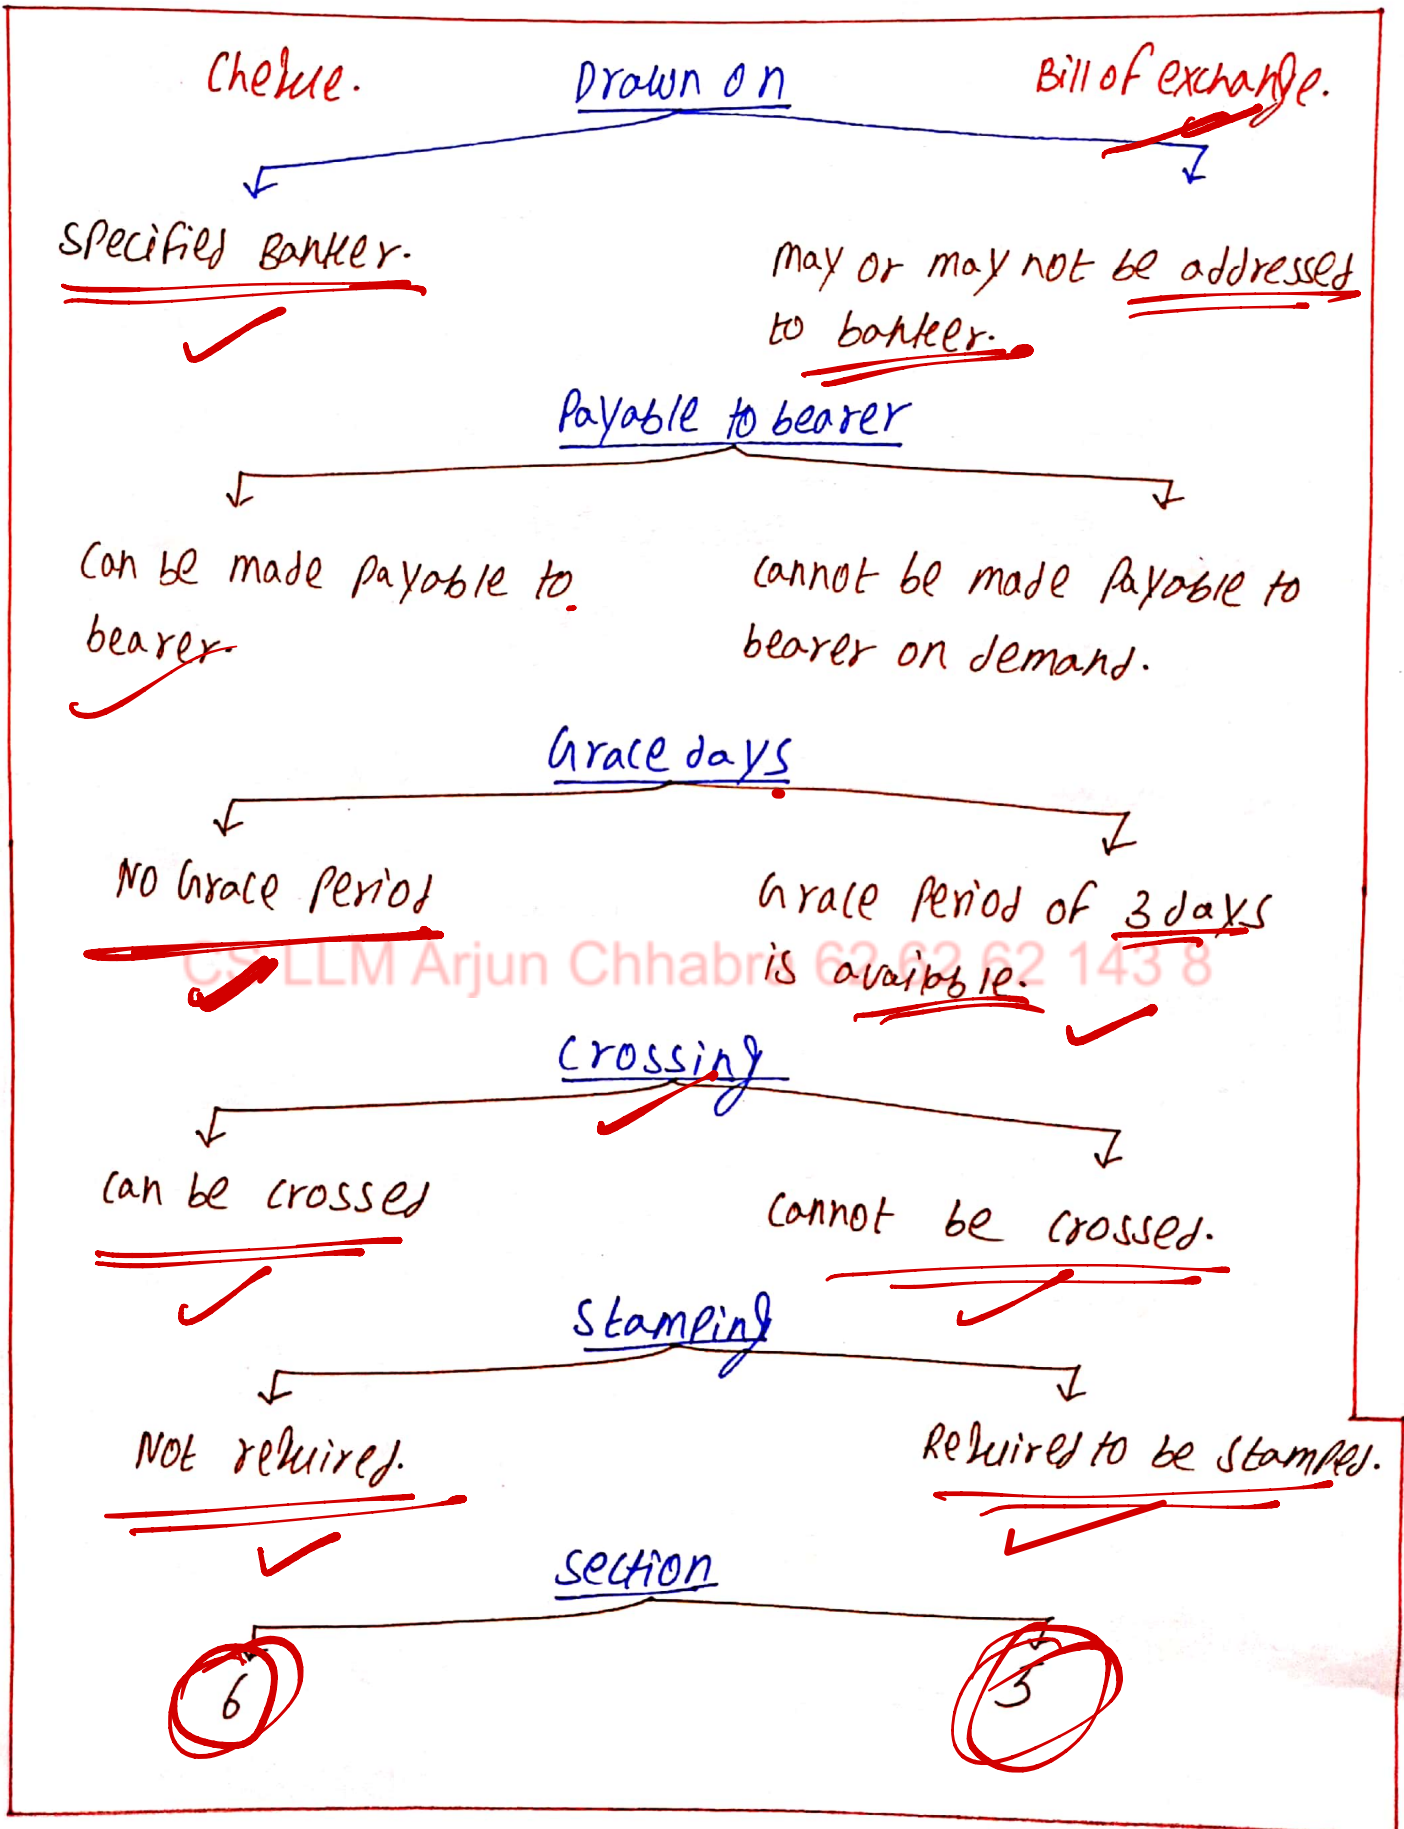 Cheque.
Drawn on
Bill of exchange.
Specified Banker.
may or may not be addressed
to banker.
Payable to bearer
Can be made payable to
bearer.
cannot be made Payable to
bearer on demand.
Grace days
No Grace Period
Grace Period of 3 days
is available.
CS LLM Arjun Chhabra 62 62 62 143 8
Crossing
can be crossed
cannot be crossed.
Stamping
Not required.
Required to be stamped.
Section
6
5